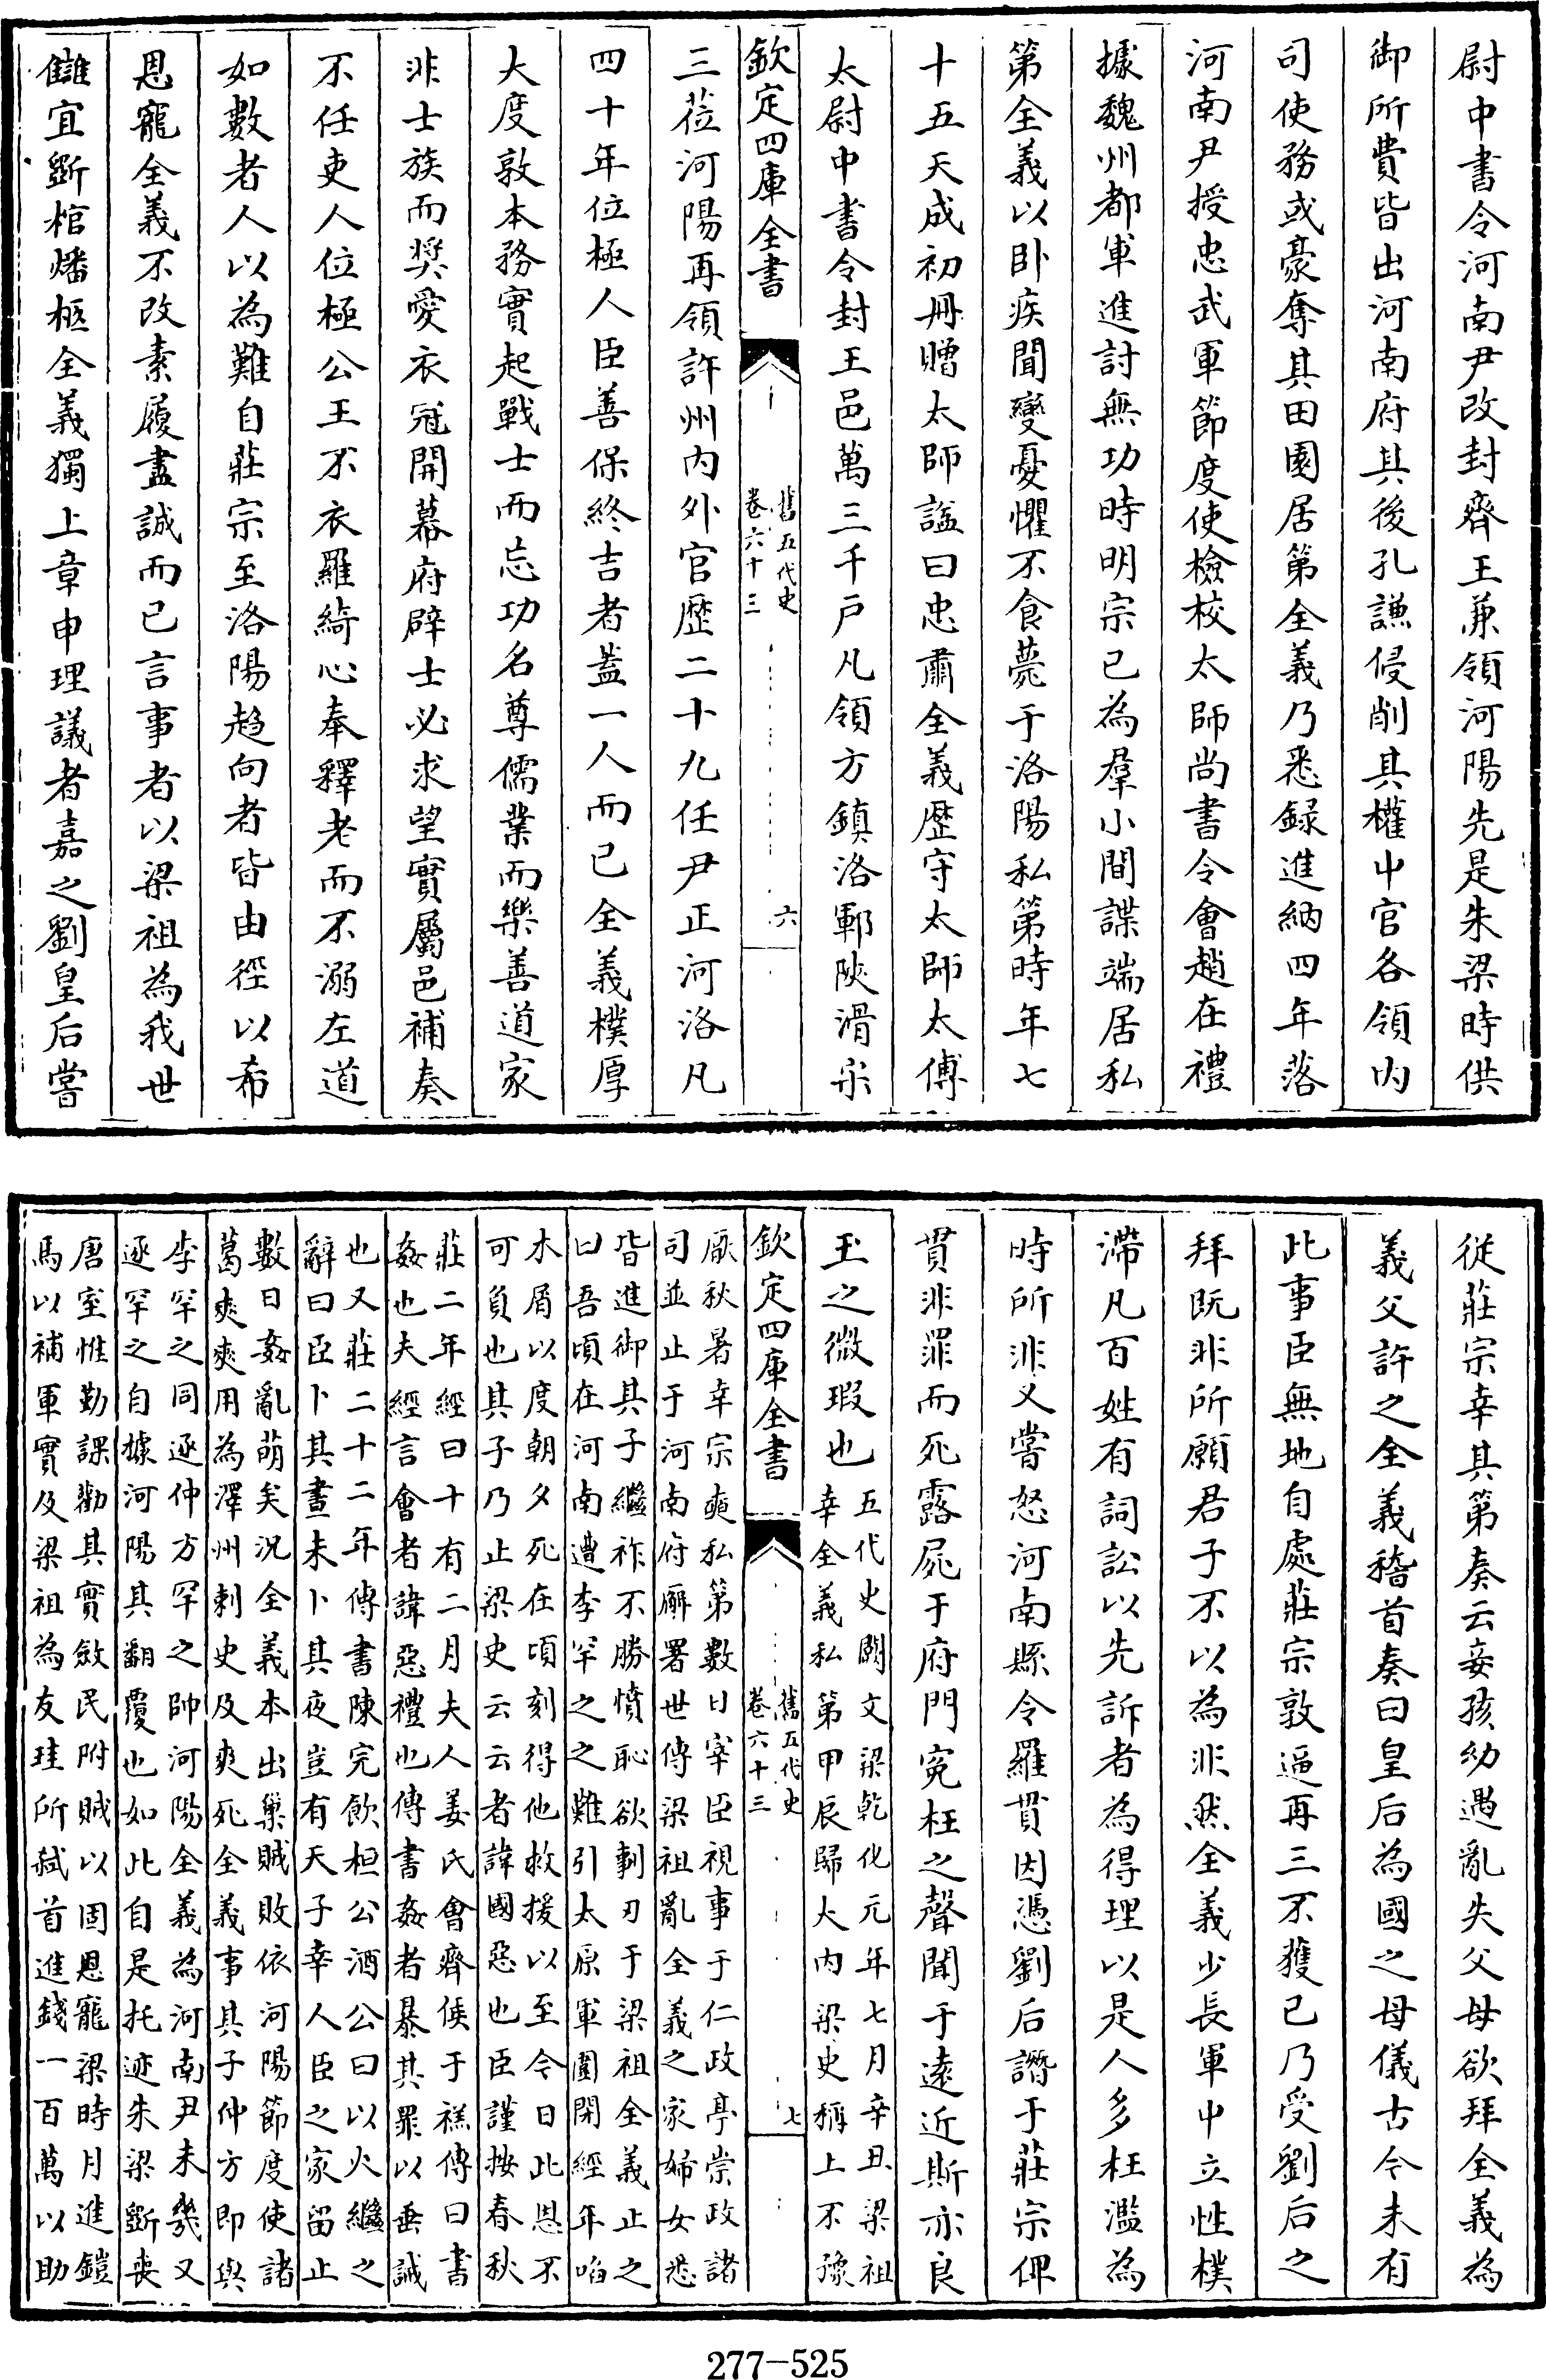 尉中書令河南尹改封齊王兼領河陽先是朱梁時供
御所費皆出河南府其後孔謙侵削其權中官各領內
司使務或豪奪其田園居第全義乃悉録進納四年落
河南尹授忠武軍節度使檢校太師尚書令會趙在禮
據魏州都軍進討無功時明宗已為羣小間諜端居私
第全義以卧疾聞變憂懼不食薨于洛陽私第時年七
十五天成初冊贈太師諡曰忠肅全義歷守太師太傅
太尉中書令封王邑萬三千戸凡領方鎮洛鄆陝滑宋
欽定四庫全書
舊五代史
卷六十三
六
三莅河陽再領許州内外官歷二十九任尹正河洛凡
四十年位極人臣善保終吉者盖一人而已全義樸厚
大度敦本務實起戰士而忘功名尊儒業而樂善道家
非士族而奬愛衣冠開幕府辟士必求望實屬邑補奏
不任吏人位極公王不衣羅綺心奉釋老而不溺左道
如數者人以為難自莊宗至洛陽趨向者皆由徑以希
恩寵全義不改素履盡誠而已言事者以梁祖為我世
讎宜斵棺燔柩全義獨上章申理議者嘉之劉皇后嘗
從莊宗幸其第奏云妾孩幼遇亂失父母欲拜全義為
義父許之全義稽首奏曰皇后為國之母儀古今未有
此事臣無地自處莊宗敦逼再三不獲已乃受劉后之
拜既非所願君子不以為非然全義少長軍中立性樸
滯凡百姓有詞訟以先訴者為得理以是人多枉濫為
時所非又嘗怒河南縣令羅貫因憑劉后譖于莊宗俾
貫非罪而死露屍于府門寃枉之聲聞于遠近斯亦良
玉之微瑕也五代史闕文梁乾化元年七月辛丑梁祖
幸全義私第甲辰歸大内梁史稱上不豫
欽定四庫全書
舊五代史
卷六十三
七
厭秋暑幸宗奭私第數日宰臣視事于仁政亭崇政諸
司並止于河南府廨署世傳梁祖亂全義之家婦女悉
皆進御其子繼祚不勝憤恥欲剚刃于梁祖全義止之
曰吾頃在河南遭李罕之之難引太原軍圍閉經年㗖
木屑以度朝夕死在頃刻得他救援以至今日此恩不
可負也其子乃止梁史云云者諱國惡也臣謹按春秋
莊二年經曰十有二月夫人姜氏會齊侯于禚傳曰書
姦也夫經言會者諱惡禮也傳書姦者暴其罪以垂誡
也又莊二十二年傳書陳完飲桓公酒公曰以火繼之
辭曰臣卜其晝未卜其夜豈有天子幸人臣之家留止
數日姦亂萌矣況全義本出巢賊敗依河陽節度使諸
葛爽爽用為澤州刺史及爽死全義事其子仲方即與
李罕之同逐仲方罕之帥河陽全義為河南尹未幾又
逐罕之自據河陽其翻覆也如此自是托迹朱梁斵喪
唐室惟勤課勸其實斂民附賊以固恩寵梁時月進鎧
馬以補軍實及梁祖為友珪所弑首進錢一百萬以助
277-525